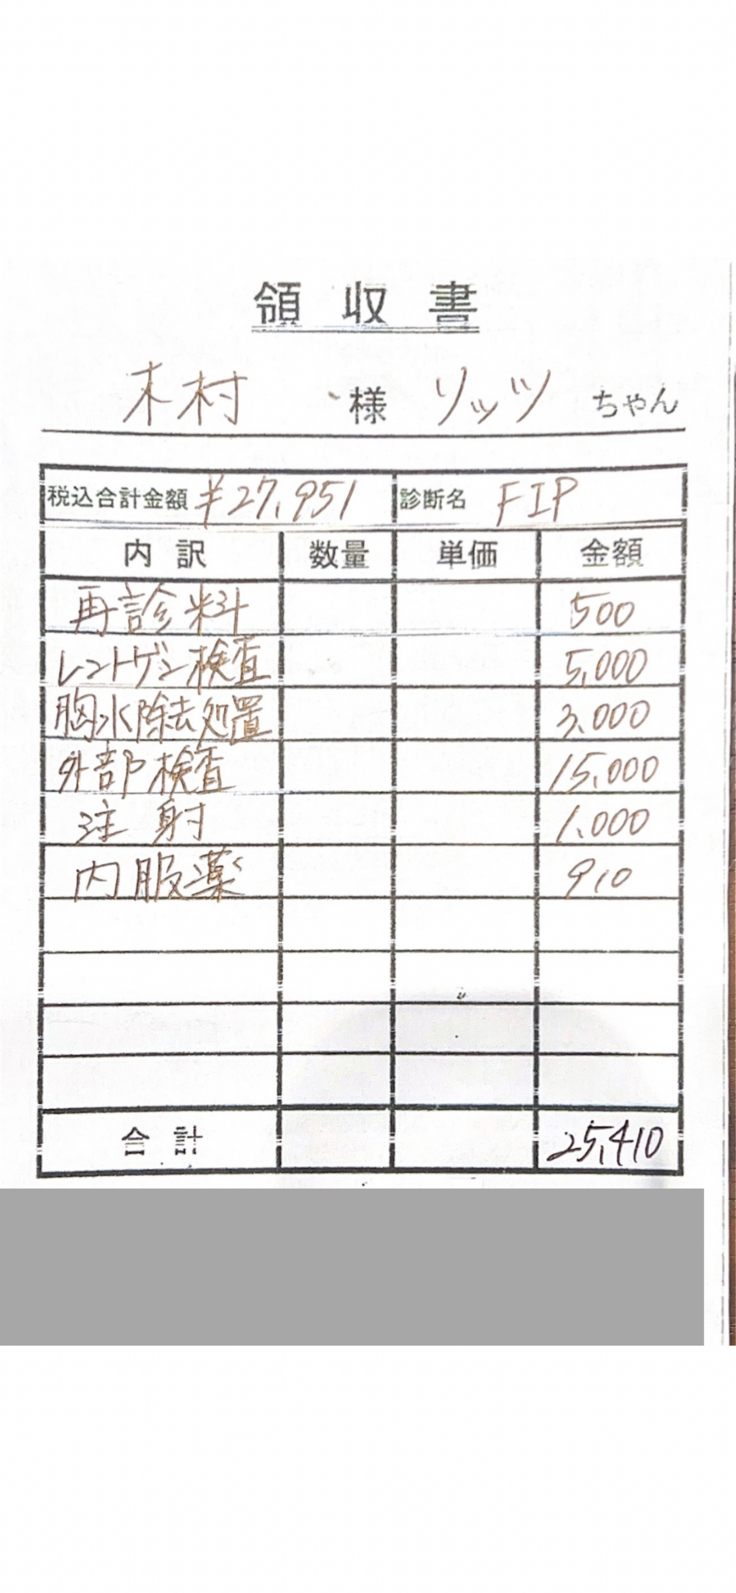 領収書
木村 様 リッツ ちゃん
税込合計金額 ¥27,951 診断名 FIP
内訳 数量 単価 金額
再診料 500
レントゲン検査 5,000
胸水除去処置 3,000
外部検査 15,000
注射 1,000
内服薬 910
合計 25,410